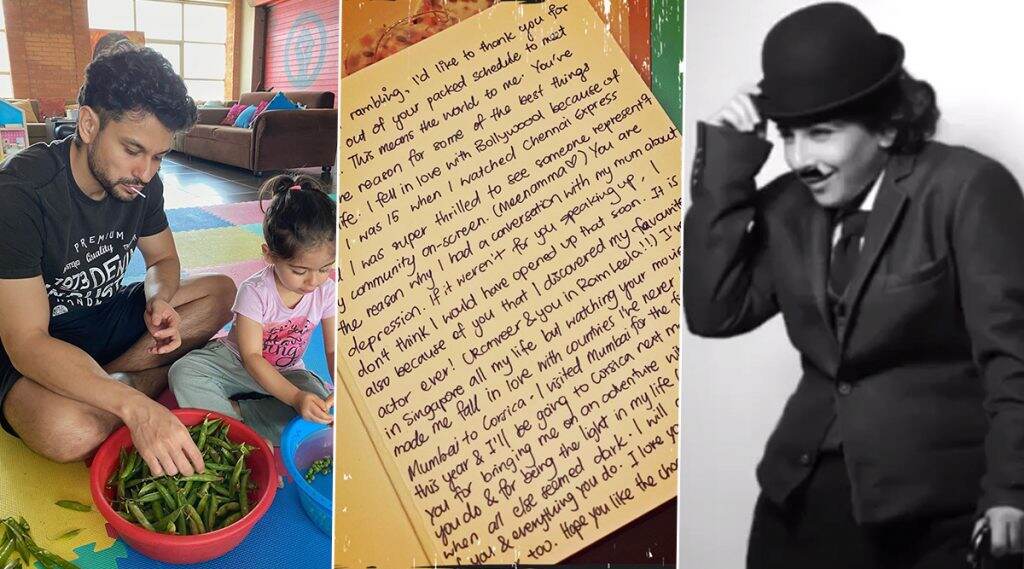 PREMIUM
Quality
1973
rambling, I'd like to thank you for
out of your packed schedule to meet
This means the world to me. You've
reason for some of the best things
I fell in love with Bollywood because of
I was 15 when I watched Chennai Express
I was super thrilled to see someone represent
community on-screen. (Meenamma ♡) You are
the reason why I had a conversation with my mum about
depression. If it weren't for you speaking up, I
don't think I would have opened up that soon. It is
also because of you that I discovered my favourite
actor ever! (Ranveer & you in Raim Leela!!)
in Singapore all my life, but watching your movies
made me fall in love with countries I've never
Mumbai to Corsica. I visited Mumbai for the
this year & I'll be going to Corsica next
you for bringing me on an adventure
you do & for being the light in my life
when all else seemed dark. I will
you & everything you do. I love
too. Hope you like the